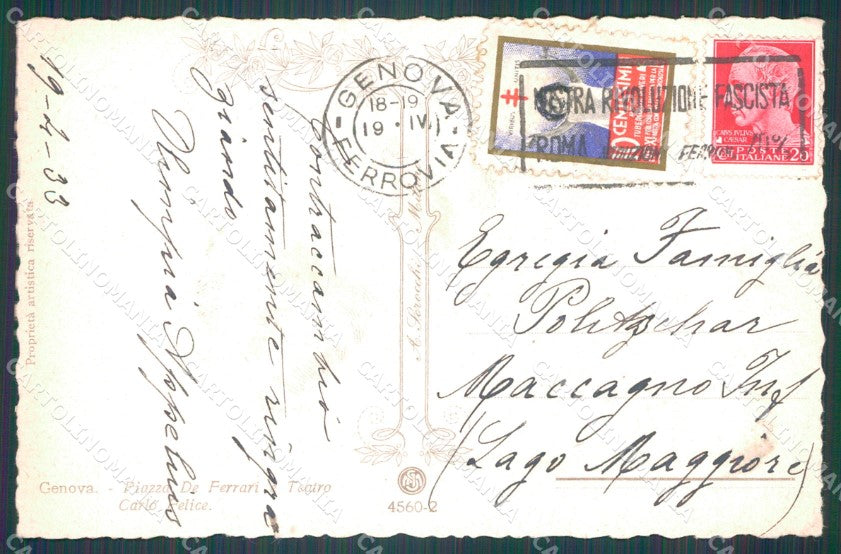 19-4-33
Contraccambio
sentitamente ringra
ziando
Olimpia
Proprietà artistica riservata
Genova. - Piazza De Ferrari e Teatro
Carlo Felice.
4560-2
GENOVA
18-19
19 · IV
FERROVIA
MOSTRA RIVOLUZIONE FASCISTA
ROMA RIDUZIONI FERROV
CENTESIMI
CAIVS IVLIVS
CAESAR
POSTE
ITALIANE 20
Egregia Famiglia
Politzchar
Maccagno Inf
(Lago Maggiore)
CARTOLINOMANIA